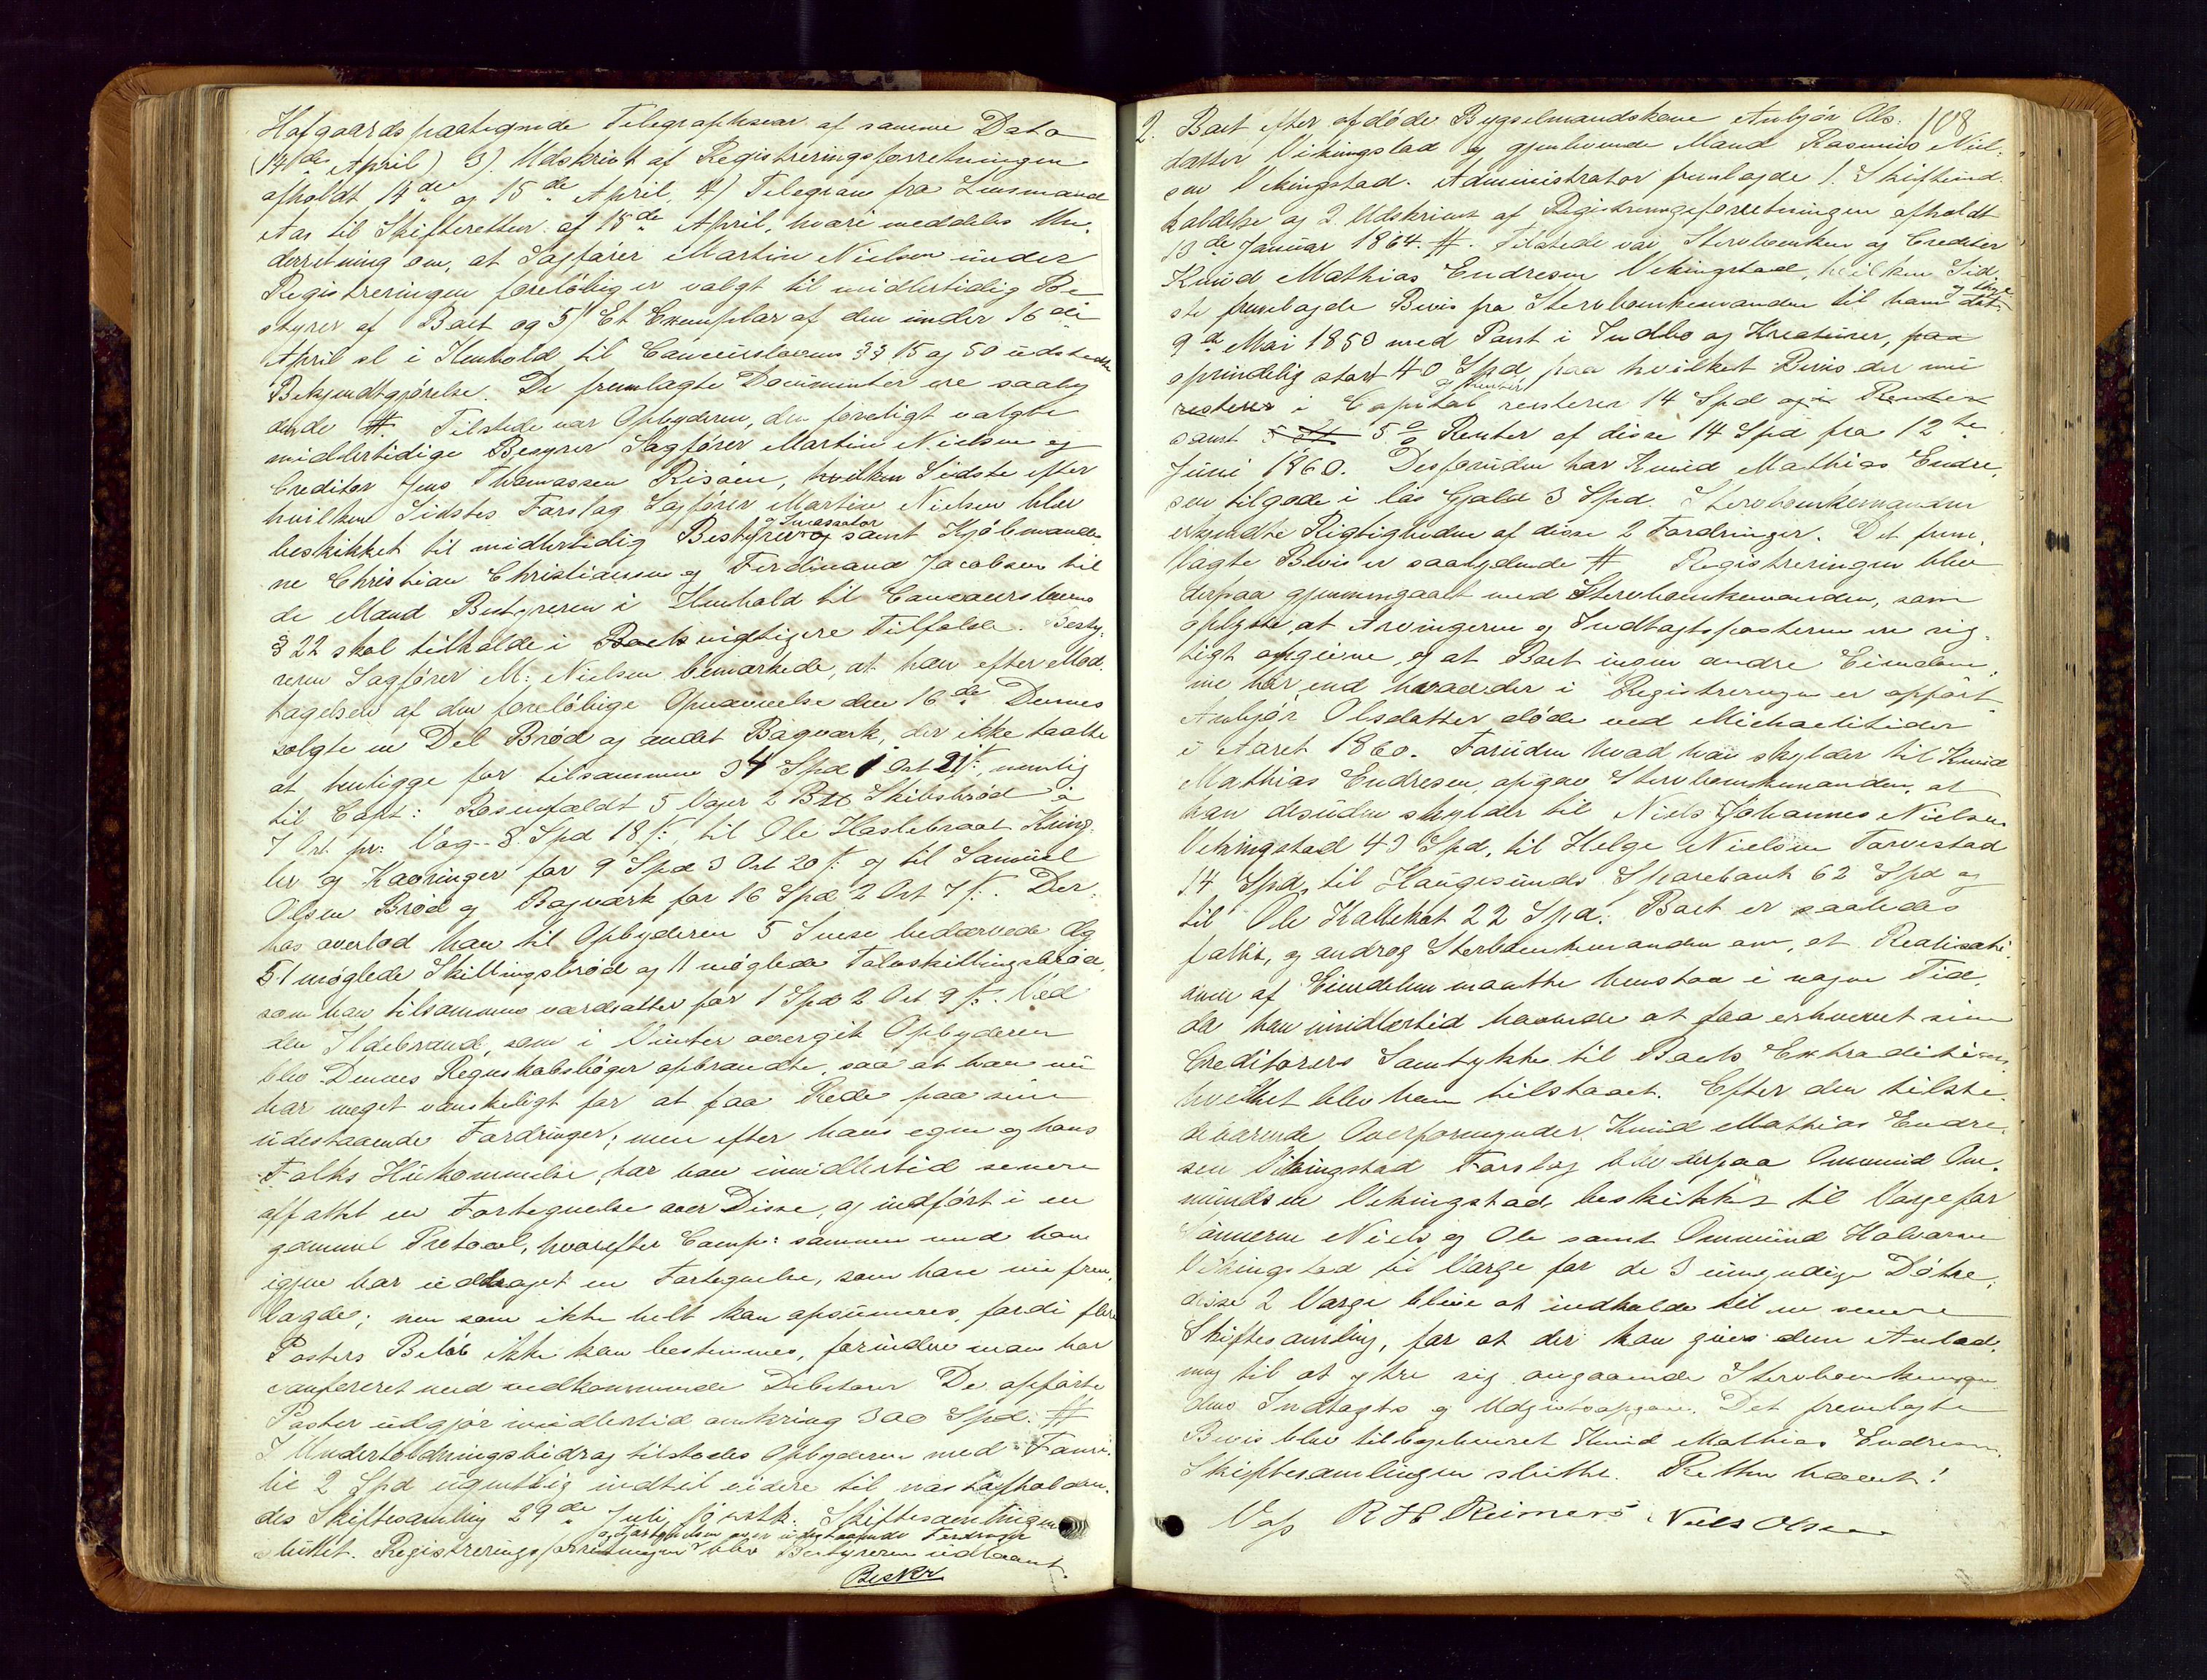 Hofgaards paategnede Telegraphsvar af samme Dato
(14de April) 3). Udskrivt af Registreringsforretningen
afholdt 14de og 15de April, 4) Telegram fra Lensmand
Aas til Skifteretten af 15de April, hvori meddeles Un-
derretning om, at Sagfører Martin Nielsen under
Registreringen foreløbig er valgt til midlertidig Be
styrer af Boet og 5) Et Exemplar af den under 16de
April sl i Henhold til Concurslovens §§ 15 og 50 udstedte
Bekjendtgjørelse. De fremlagte Documenter ere saaly
dende #. Tilstede var Opbyderen, den foreligt valgte
midlertidige Besyrer Sagfører Martin Nielsen og
Creditor Jens Thomassen Risøen, hvilken Sidste efter
hvilken Sidstes Forslag Sagfører Martin Nielsen blev
beskikket til midlertidig Bestyrer og Incassator samt Kjøbmænde
ne Christian Christiansen og Ferdinand Jacobsen til
de Mænd Bestyreren i Henhold til Concurslovens
§ 22 skal tilholde i Boets vigtigere Tilfælde. Besty-
reren Sagfører M: Nielsen bemærkede, at han efter Mod-
tagelsen af den foreløbige Opnævnelse den 16de Dennes
solgte en Del Brød og andet Bagværk, der ikke taalte
at henligge for tilsammen 34 Spd 1 Ort 21 s:, nemlig
til Capt: Rosenfeldt 5 Voger 2 B Skibsbrød à
7 Ort pr: Vog - 8 Spd 18 s:, til Ole Haslebraat Kring-
ler og Kavringer for 9 Spd 3 Ort 20 s: og til Samuel
Olsen Brød og Bagværk for 16 Spd 2 Ort 7 s:. Der-
hos overlod han til Opbyderen 5 Snese bedærvede Æg
51 møglede Skillingsbrød og 11 møglede Tolvskillingsbrød,
som han tilsammen værdsatter for 1 Spd 2 Ort 9 s:. Ved
den Ildebrand, som i Vinter overgik Opbyderen
blev Dennes Regnskabsbøger opbrændte, saa at han nu
har meget vanskeligt for at faa Rede paa sine
udestaaende Fordringer; men efter hans egen og hans
Folks Hukommelse, har han imidlertid senere
affattet en Fortegnelse over Disse, og indført i en
gammel Protocol, hvorefter Comp: sammen med ham
igjen har uddraget en Fortegnelse, som han nu frem-
lagde; men som ikke helt kan opsumeres, fordi flere
Posters Beløb ikke kan bestemmes, forinden man har
confereret med vedkommende Debitorer De opførte
Poster udgjør imidlertid omkring 300 Spd. #
I Underholdningsbidrag tilstodes Opbyderen med Fami-
lie 2 Spd ugentlig indtil videre til næst afholden-
des Skiftesamling 29de Juli førstk: Skiftesamlingen
sluttet. Registreringsforretningen og Fortegnelsen over udestaaende Fordringer blev Bestyreren udlaant.
Beskr
108
2. Boet efter afdøde Bygselmandskone Anbjør Ols-
datter Vikingstad og gjenlevende Mand Rasmus Niel-
sen Vikingstad. Administrator fremlagde 1. Skifteind-
kaldelse og 2. Udskrivt af Registreringsforretningen afholdt
13de Januar 1864. #. Tilstede var Stervboenken og Creditor
Knud Mathias Endresen Vikingstad, hvilken Sid-
ste fremlagde Bevis fra Stervboenkemanden til ham dat:
9de Mai 1850 med Pant i Indbo og Kreaturer, paa
oprindelig stort 40 Spd paa hvilket Bevis der nu
resterer i Capital og Renter resterer 14 Spd og i Renter
samt 5 % Renter af disse 14 Spd fra 12te
Juni 1860. Desforuden har Knud Mathias Endre-
sen tilgode i løs Gjæld 3 Spd. Stervboenkemanden
erkjendte Rigtigheden af disse 2 Fordringer. Det frem-
lagte Bevis er saalydende # Registreringen blev
derpaa gjennemgaaet med Stervboenkemanden, som
oplyste, at Arvingerne og Indtægtsposterne ere rig-
tigt opgivne, og at Boet ingen andre Eiendom-
me har, end hvad der i Registreringen er opført
Anbjør Olsdatter døde ved Michaelitider
i Aaret 1860. Foruden hvad han skylder til Knud
Mathias Endresen, opgav Stervboenkemanden, at
han desuden skylder til Niels Johannes Nielsen
Vikingstad 43 Spd, til Helge Nielsen Torvestad
14 Spd, til Haugesunds Sparebank 62 Spd og
til Ole Kallekot 22 Spd. Boet er saaledes
fallit, og androg Stervboenkemanden om, at Realisati-
onen af Eiendelene maatte henstaa i nogen Tid,
da han imidlertid haabede at faa erhvervet sine
Creditorers Samtykke til Boets Extradition,
hvilket blev ham tilstaaet. Efter den tilste-
deværende Overformynder Knud Mathias Endre-
sen Vikingstad Forslag blev derpaa Ommund Om-
mundsen Vikingstad beskikket til Værge for
Sønnerne Niels og Ole samt Ommund Halvorsen
Vikingstad til Værge for de 3 umyndige Døtre;
disse 2 Værge blive at indkalde til en senere
Skiftesamling, for at der kan gives dem Anled-
ning til at ytre sig angaaende Stervboenkeman-
dens Indtægts og Udgiftsopgave. Det fremlagte
Bevis blev tilbageleveret Knud Mathias Endresen.
Skiftesamlingen sluttet. Retten hævet!
R H Reimers Niels Olsen